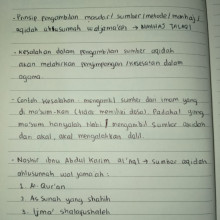 - Prinsip pengambilan masdar/ sumber/metode/manhaj/
aqidah ahlusunnah waljama'ah → MANHAJ TALAQI
- Kesalahan dalam pengambilan sumber aqidah
akan melahirkan penyimpangan/kesesatan dalam
agama.
- Contoh kesalahan : mengambil sumber dari imam yang
di ma'sum-kan (harus memiliki dalil). Padahal yang
ma'sum hanyalah Nabi / mengambil sumber aqidah
dari akal, akal mengalahkan dalil.
- Nashir ibnu Abdul Karim Al 'Aql → sumber aqidah
ahlusunnah wal jama'ah :
1. Al-Qur'an
2. As Sunah yang shahih
3. Ijma' shalafusholeh